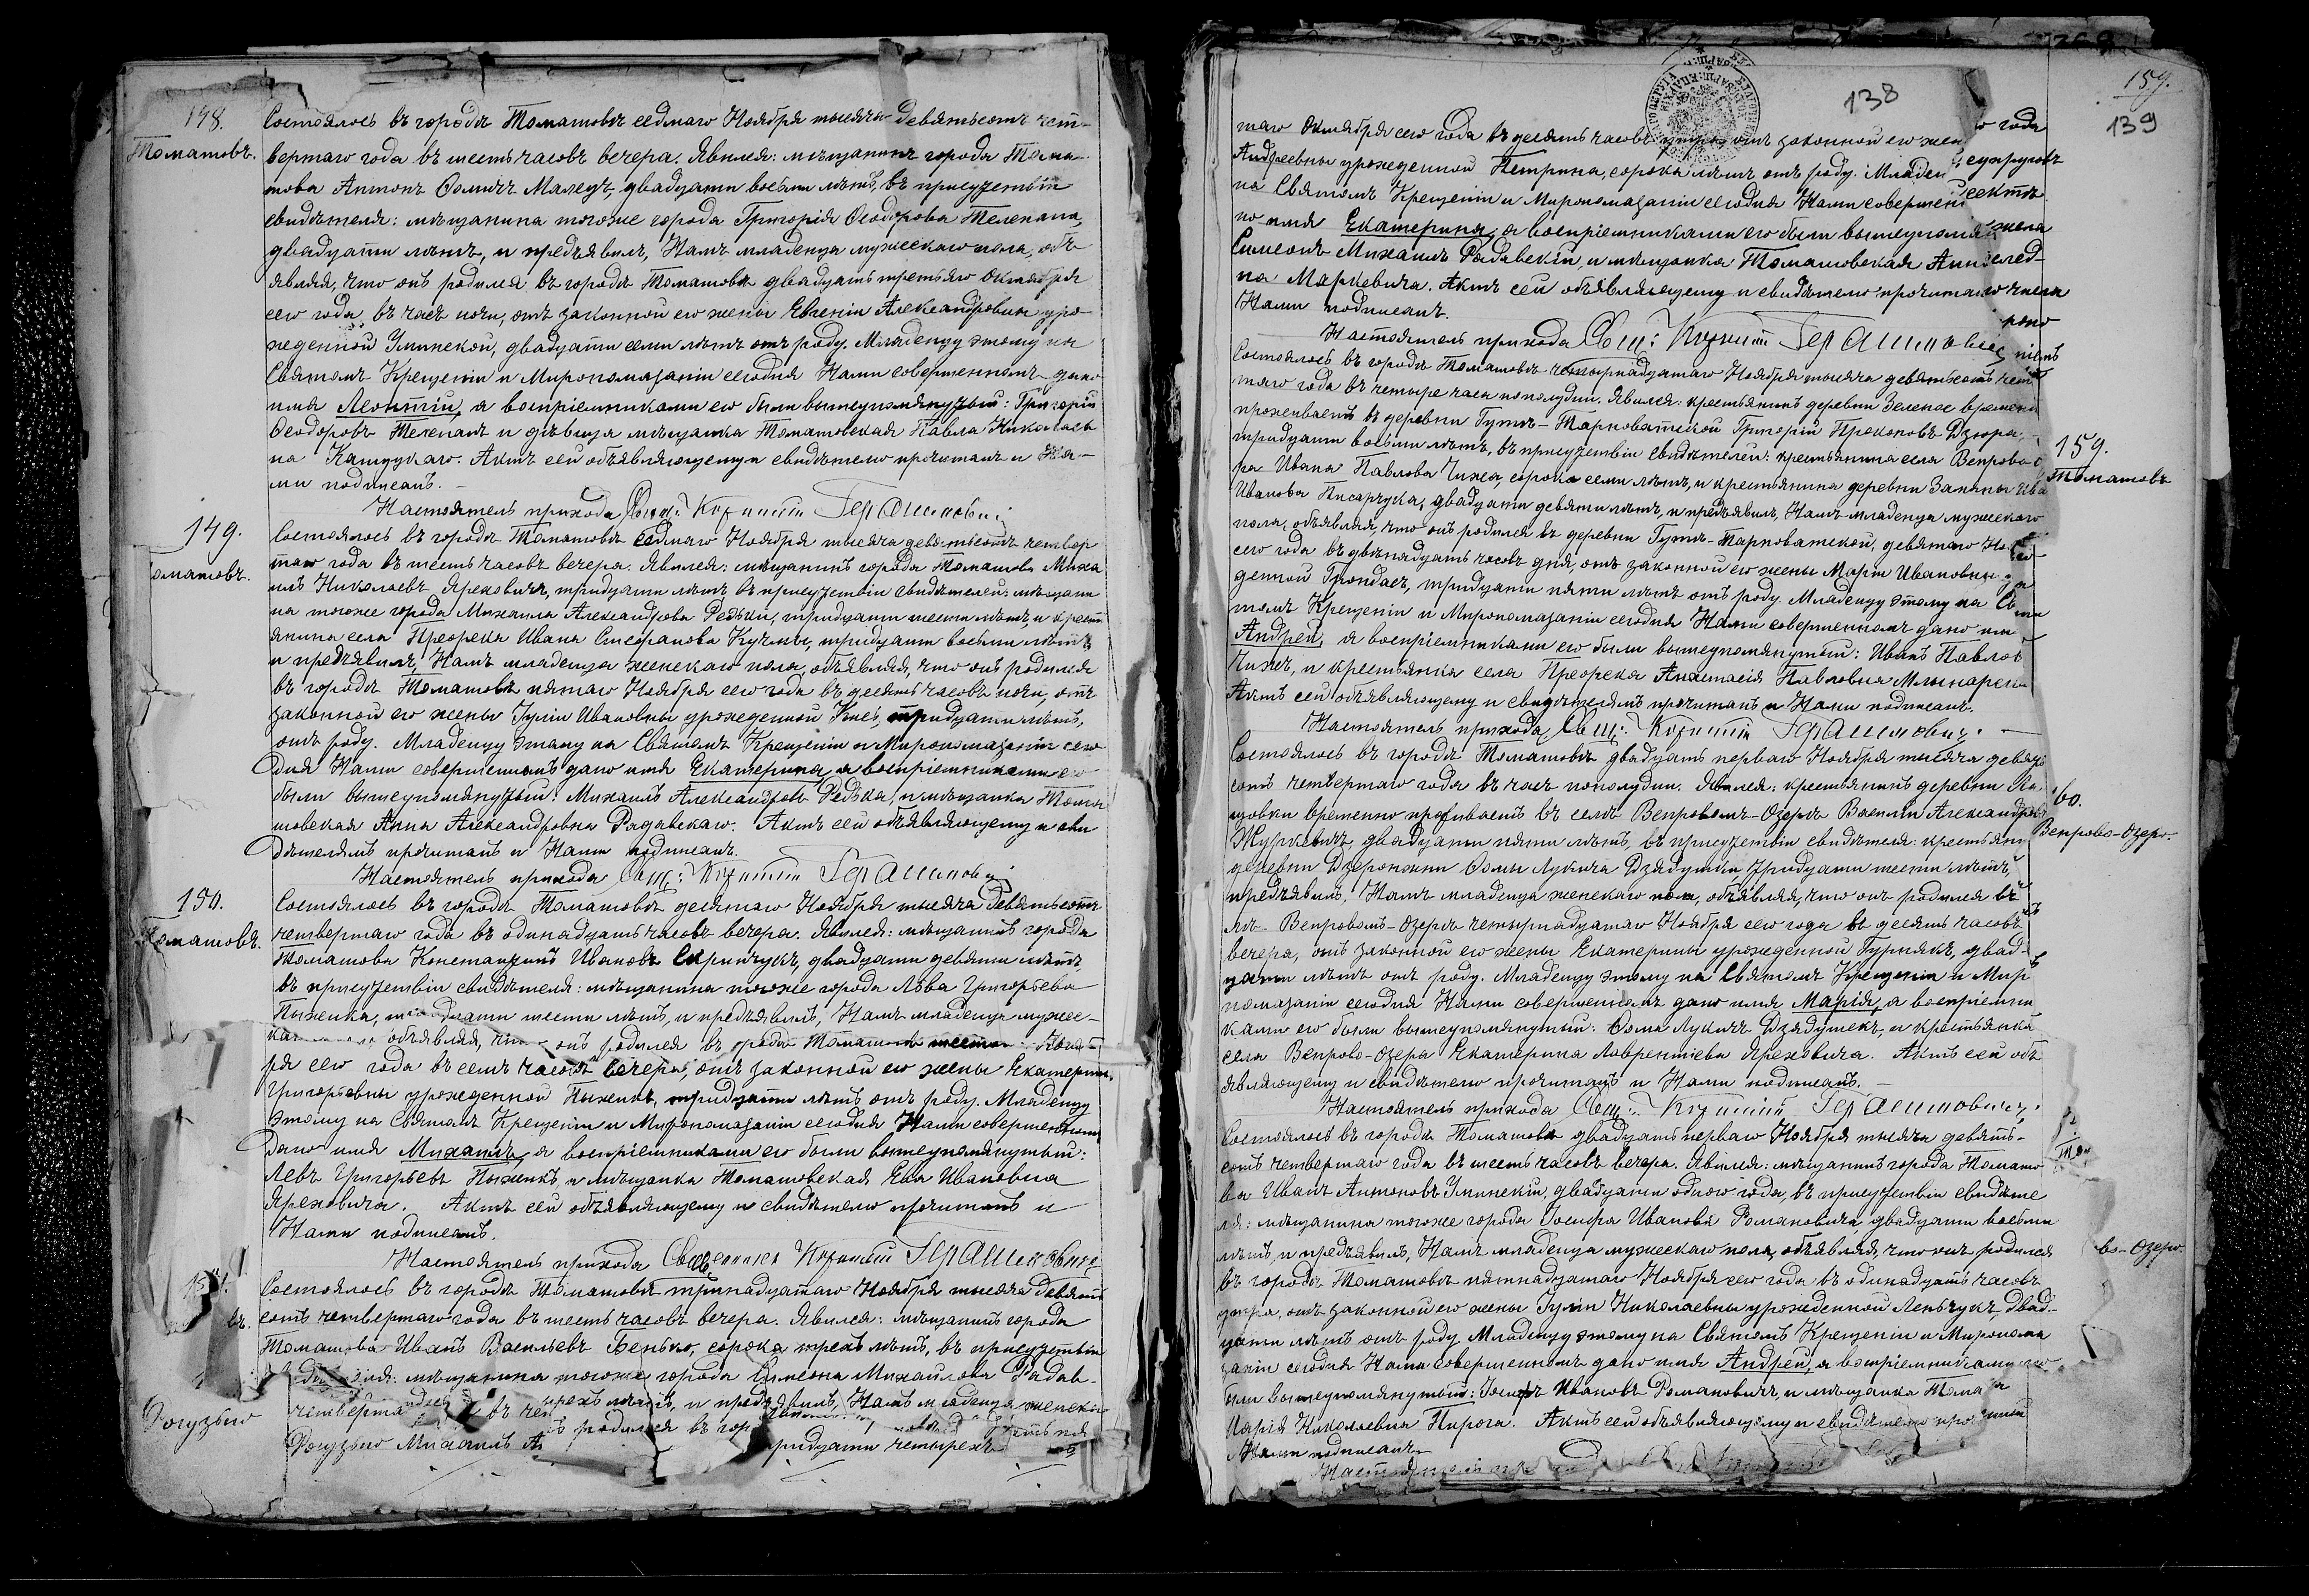 148.
Томашовъ.
Состоялось въ городѣ Томашовѣ седмаго Ноября тысяча девятьсотъ чет-
вертаго года въ шесть часовъ вечера. Явился: мѣщанинъ города Тома-
шова Антонъ Ѳомичъ Малецъ, двадцати восьми лѣтъ, въ присутствіи
свидѣтеля: мѣщанина тогоже города Григорія Ѳеодорова Телепана,
двадцати лѣтъ, и предъявилъ, Намъ младенца мужескаго пола, объ-
являя, что онъ родился въ городѣ Томашовѣ двадцать третьяго Октября
сего года, въ часъ ночи, отъ законной его жены Евгеніи Александровны уро-
жденной Улинской, двадцати семи лѣтъ отъ роду. Младенцу этому на
Святомъ Крещеніи и Миропомазаніи сегодня Нами совершенномъ дано
имя Леонтій, а воспріемниками его были вышеупомянутый: Григорій
Ѳеодоровъ Телепанъ и дѣвица мѣщанка Томашовская Павла Николаев
на Кащуцкаго. Актъ сей объявляющему и свидѣтелю прочитанъ и На-
ми подписанъ.
Настоятель прихода Свящ: Корнилій Герасимовичъ
149.
омашовъ.
Состоялось въ городѣ Томашовѣ седмаго Ноября тысяча девятьсотъ четвер
таго года въ шесть часовъ вечера: Явился: мѣщанинъ города Томашова Миха
илъ Николаевъ Яреховичъ, тридцати лѣтъ въ присутствіи свидѣтелей: мѣщани
на тогоже города Михаила Александрова Редьки, тридцати шести лѣтъ, и крест
янина села Преорска Ивана Стефанова Кучмы, тридцати восьми лѣтъ
и предъявилъ, Намъ младенца женскаго пола, объявляя, что онъ родился
въ городѣ Томашовѣ пятаго Ноября сего года въ десять часовъ ночи, отъ
законной его жены Іуліи Ивановны урожденной Кнеъ, тридцати лѣтъ,
отъ роду. Младенцу этому на Святомъ Крещеніи и Миропомазаніи сего
дня Нами совершенномъ дано имя Екатерина, а воспріемниками его
были вышеупомянутый: Михаилъ Александровъ Редька, и мѣщанка Тома
шовская Анна Александровна Радавскаго. Актъ сей объявляющему и сви
дѣтелямъ прочитанъ и Нами подписанъ.
Настоятель прихода Свящ: Корнилій Герасимовичъ
150.
омашовъ.
Состоялось въ городѣ Томашовѣ десятаго Ноября тысяча девятьсотъ
четвертаго года въ одинадцать часовъ вечера. Явился: мѣщанинъ города
Томашова Константинъ Ивановъ Скринчукъ, двадцати девяти лѣтъ,
въ присутствіи свидѣтеля: мѣщанина тогоже города Льва Григорьева
Пыженка, тридцати шести лѣтъ, и предъявилъ, Намъ младенца мужес-
ка объявляя, что онъ родился въ городѣ Томашовѣ шестаго Нояб
ря сего года въ семь часовъ вечера, отъ законной его жены Екатерины
Григорьевны урожденной Пыженкъ, тридцати лѣтъ отъ роду. Младенцу
этому на Святомъ Крещеніи и Миропомазаніи сегодня Нами совершенномъ
дано имя Михаилъ, а воспріемниками его были вышеупомянутый:
Левъ Григорьевъ Пыженкъ, и мѣщанка Томашовская Ева Ивановна
Яреховича. Актъ сей объявляющему и свидѣтелю прочитанъ и
Нами подписанъ.
Настоятель прихода Священникъ Корнилій Герасимовичъ
151.
въ.
Состоялось въ городѣ Томашовѣ тринадцатаго Ноября тысяча девять
сотъ четвертаго года въ шесть часовъ вечера. Явился: мѣщанинъ города
Томашова Иванъ Васильевъ Бенько, сорока трехъ лѣтъ, въ присутствіи
мѣщанина тогоже города Симеона Михаилова Радав-
трехъ лѣтъ, и предъявилъ, Намъ младенца женска
родился въ гор
Рогузьно
четверта
Рогузьно Михаилъ
тридцати четырехъ
138
159.
139
таго Октября сего года въ десять часовъ утра отъ законной его жен
Андреевны урожденной Петрина, сорока лѣтъ отъ роду. Младен
на Святомъ Крещеніи и Миропомазаніи сегодня Нами совершен
но имя Екатерина, а воспріемниками его были вышеупомян
Симеонъ Михаилъ Радавскій, и мѣщанка Томашовская Анн
на Маркевича. Актъ сей объявляющему и свидѣтелю прочитан
Нами подписанъ.
года
супругов
жена
числа
Настоятель прихода Свящ: Корнилій Герасимовичъ
159.
Томашовъ
Состоялось въ городѣ Томашовѣ четырнадцатаго Ноября тысяча девятьсотъ чет
таго года въ четыре часа пополудни. Явился: крестьянинъ деревни Зеленое времен
проживаетъ въ деревни Гутѣ-Тарноватской Григорій Прокоповъ Дзюра,
тридцати восьми лѣтъ, въ присутствіи свидѣтелей: крестьянина села Вепрово-О
ра Ивана Павлова Чижа, сорока семи лѣтъ, и крестьянина деревни Замяны Ива
Иванова Писарчука, двадцати девяти лѣтъ, и предъявилъ, Намъ младенца мужескаго
пола, объявляя, что онъ родился въ деревни Гутѣ-Тарноватской, девятаго Но
сего года въ двѣнадцать часовъ дня, отъ законной его жены Маріи Ивановны
денной Грондаеъ, тридцати пяти лѣтъ отъ роду. Младенцу этому на Св
томъ Крещеніи и Миропомазаніи сегодня Нами совершенномъ дано имя
Андрей, а воспріемниками его были вышеупомянутый: Иванъ Павлов
Чижъ, и крестьянка села Преорска Анастасія Павловна Млынарска
Актъ сей объявляющему и свидѣтелямъ прочитанъ и Нами подписанъ.
Настоятель прихода Свящ: Корнилій Герасимовичъ
160.
Вепрово-Озеро.
Состоялось въ городѣ Томашовѣ двадцать перваго Ноября тысяча девять
сотъ четвертаго года въ часъ пополудни. Явился: крестьянинъ деревни Ла
щовки временно проживаетъ въ селѣ Вепровомъ-Озерѣ Василій Александров
Журкевичъ, двадцати пяти лѣтъ, въ присутствіи свидѣтеля: крестьяни
деревни Дзеронжни Ѳомы Лукича Дзядушки, тридцати шести лѣтъ,
предъявилъ, Намъ младенца женскаго пола, объявляя, что онъ родился въ
лѣ Вепровомъ-Озерѣ четырнадцатаго Ноября сего года въ десять часовъ
вечера, отъ законной его жены Екатерины урожденной Гурнякъ, двад-
цати лѣтъ отъ роду. Младенцу этому на Святомъ Крещеніи и Мир
помазаніи сегодня Нами совершенномъ дано имя Марія, а воспріемни
ками его были вышеупомянутый: Ѳома Лукичъ Дзядушекъ, и крестьянка
села Вепрово-Озера Екатерина Лаврентіева Яреховича. Актъ сей объ
являющему и свидѣтелю прочитанъ и Нами подписанъ.
Настоятель прихода Свящ: Корнилій Герасимовичъ
Состоялось въ городѣ Томашовѣ двадцать перваго Ноября тысяча девять-
сотъ четвертаго года въ шесть часовъ вечера. Явился: мѣщанинъ города Томашо
ва Иванъ Антоновъ Улинскій, двадцати одного года, въ присутствіи свидѣте
ля: мѣщанина тогоже города Іосифа Иванова Романовича, двадцати восьми
лѣтъ, и предъявилъ, Намъ младенца мужескаго пола, объявляя, что онъ родился
во-Озеро.
въ городѣ Томашовѣ пятнадцатаго Ноября сего года въ одинадцать часовъ
утра, отъ законной его жены Іуліи Николаевны урожденной Леньчукъ, двад-
цати лѣтъ отъ роду. Младенцу этому на Святомъ Крещеніи и Миропома
заніи сегодня Нами совершенномъ дано имя Андрей, а воспріемниками его
были вышеупомянутый: Іосифъ Ивановъ Романовичъ, и мѣщанка Тома
Марія Николаевна Пирога. Актъ сей объявляющему и свидѣтелю про
Нами подписанъ.
Настоятель